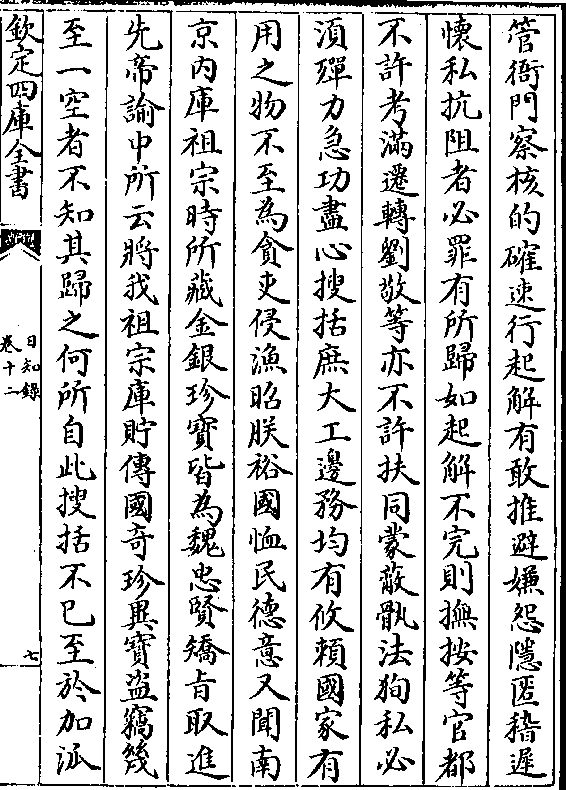 管衙門察核的確速行起解有敢推避嫌怨隱匿稽遲
懷私抗阻者必罪有所歸如起解不完則撫按等官都
不許考滿遷轉劉敬等亦不許扶同蒙蔽骫法狥私必
須殫力急功盡心搜括庶大工邊務均有攸賴國家有
用之物不至為貪吏侵漁昭朕裕國恤民德意又聞南
京内庫祖宗時所藏金銀珍寶皆為魏忠賢矯旨取進
先帝諭中所云將我祖宗庫貯傳國奇珍異寳盗竊幾
至一空者不知其歸之何所自此搜括不已至於加派
欽定四庫全書
日知錄
卷十二
七